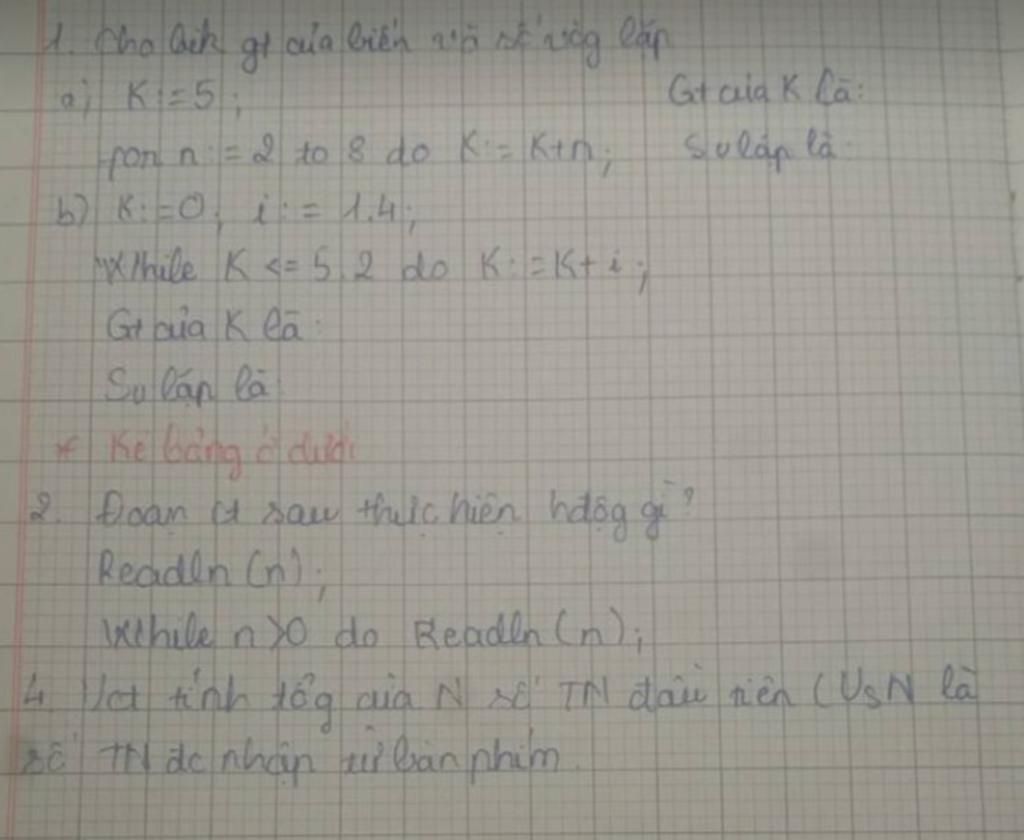 1. Cho biết gt của biến và số vòg lặp
a) K:=5; Gt của K là:
for n:=2 to 8 do K:=K+n; Số lặp là:
b) K:=0; i:=1.4;
While K <= 5.2 do K:=K+i;
Gt của K là:
Số lặp là:
* Kẻ bảng ở dưới
2. Đoạn ct sau thực hiện hđộg gì?
Readln (n);
While n>0 do Readln (n);
4. Vct tính tổg của N số TN đầu tiên (Vs N là
số TN đc nhập từ bàn phím.